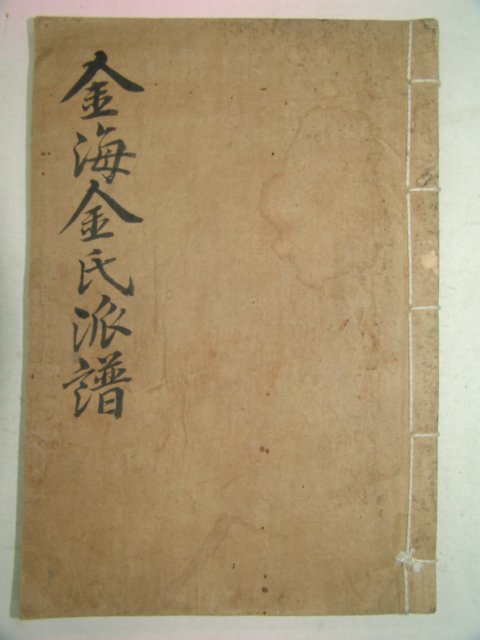 金海金氏派譜